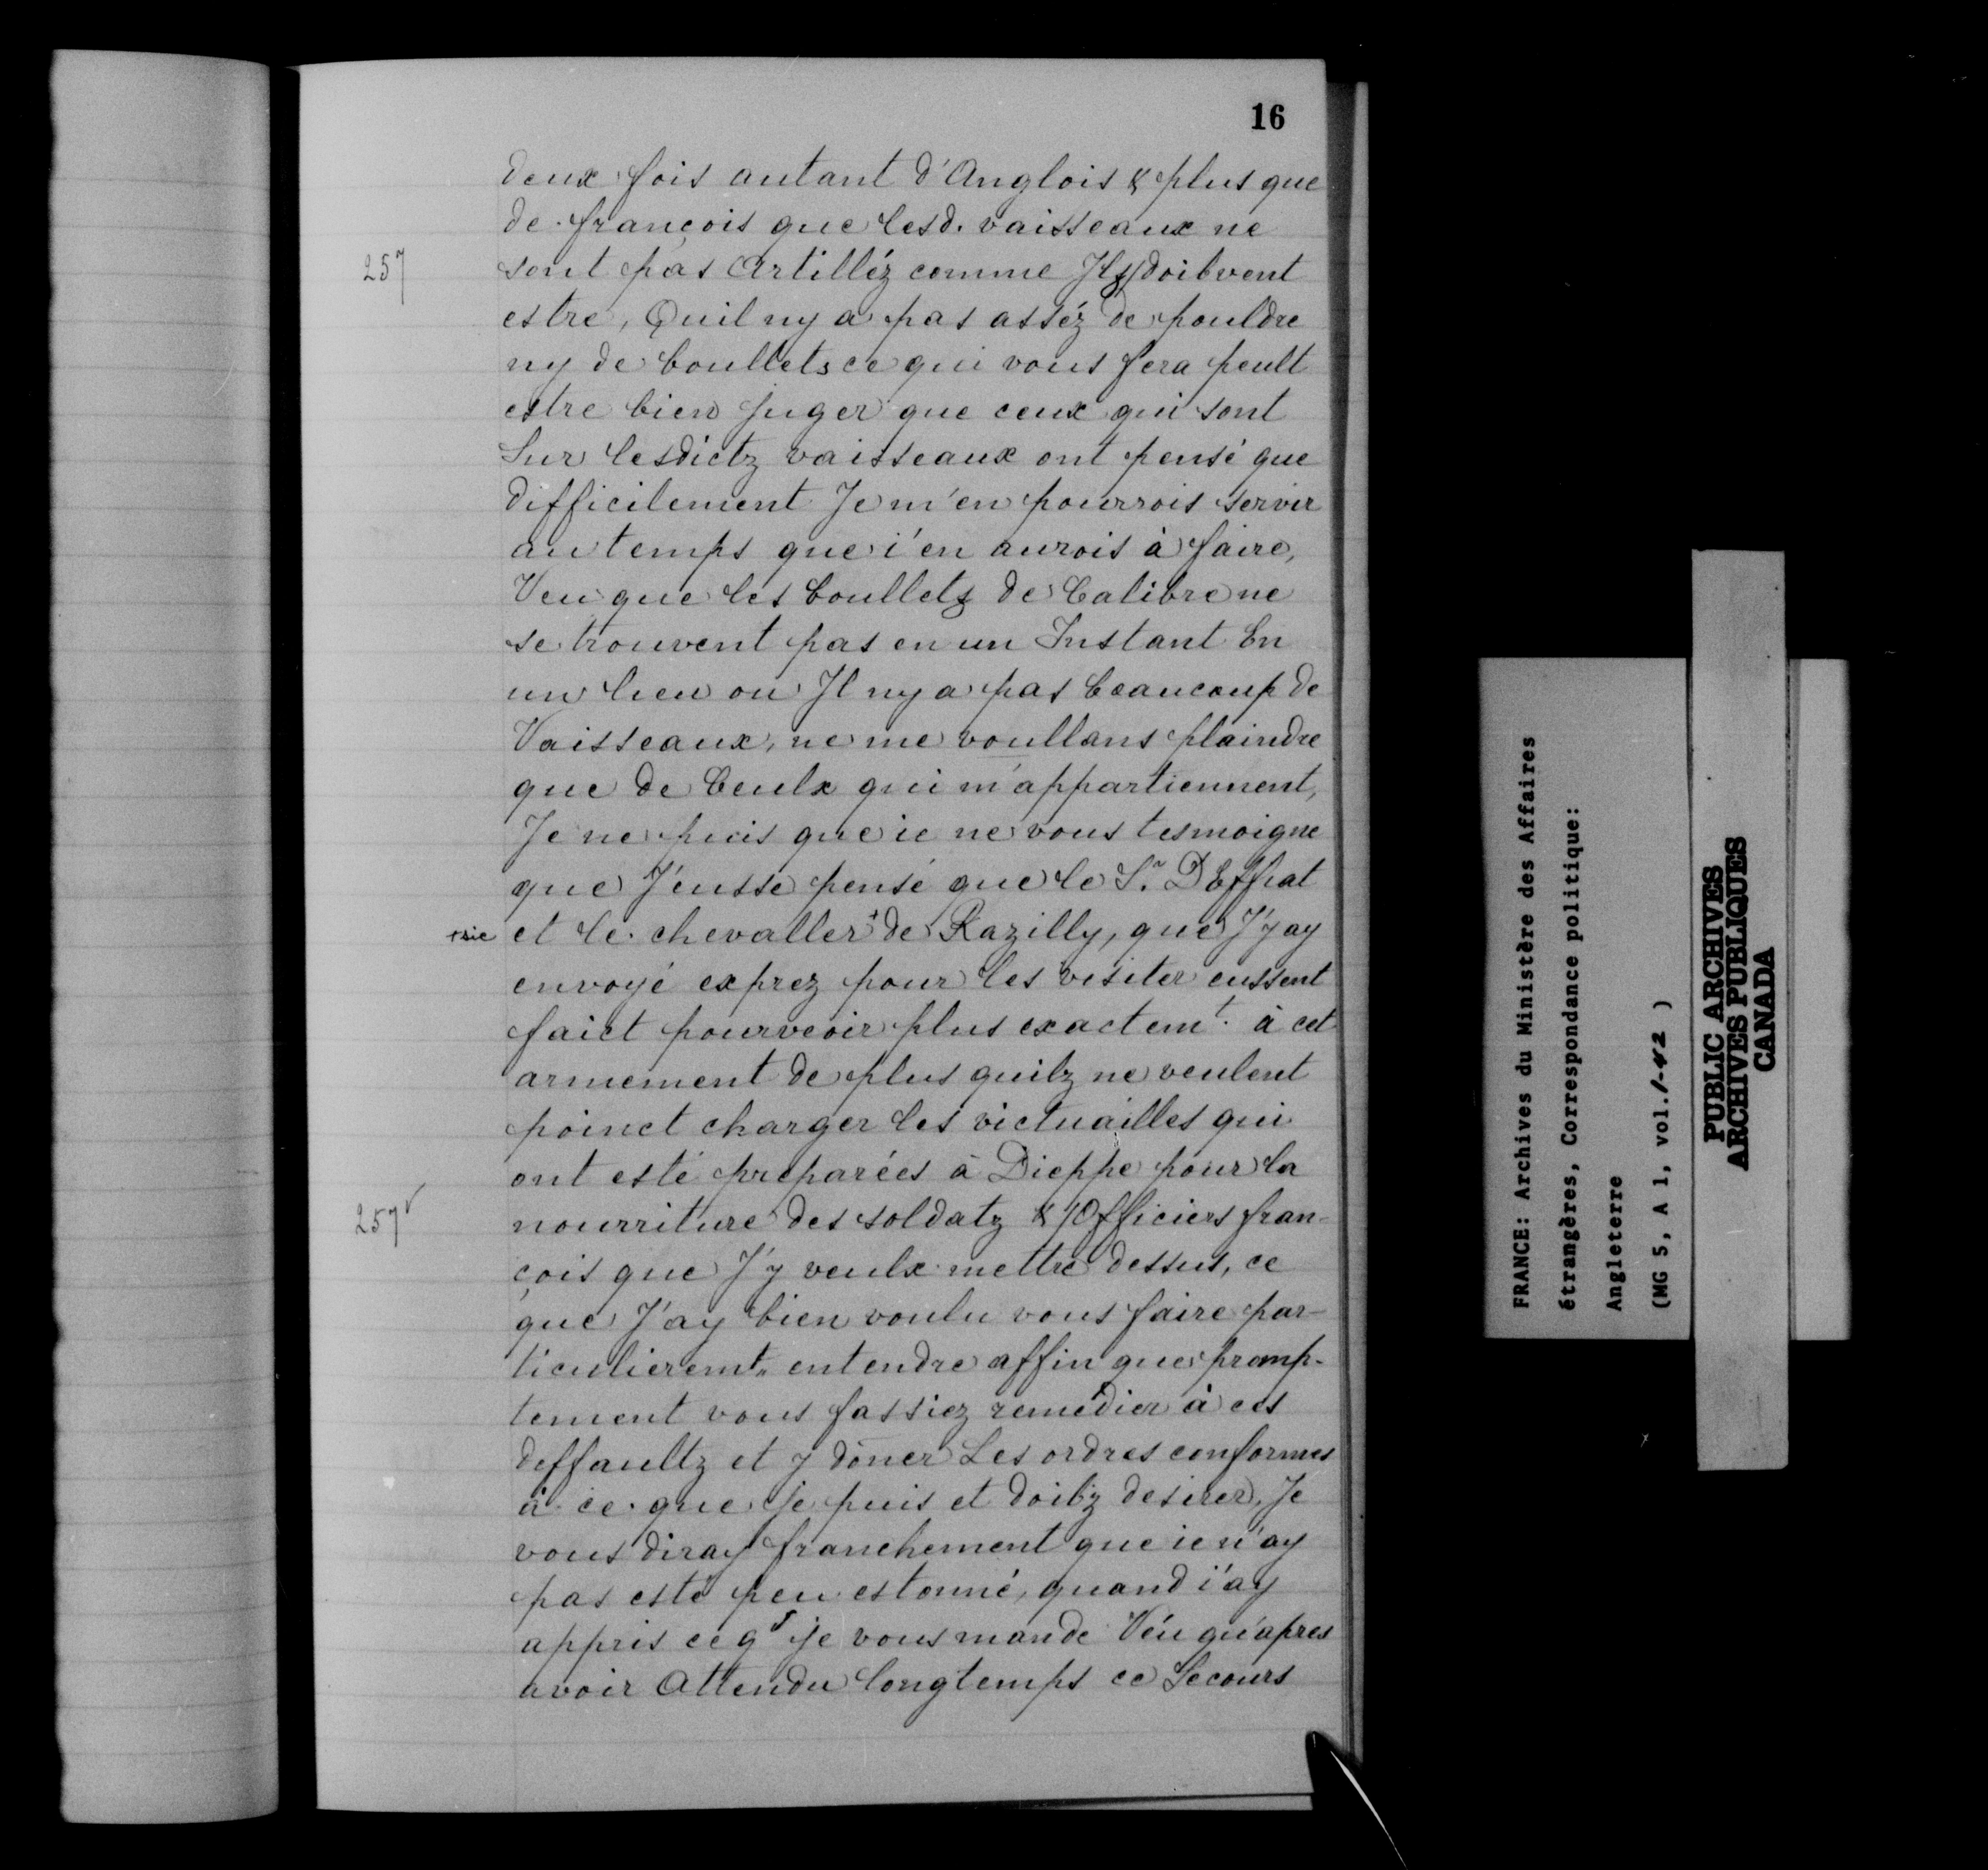 16
deux fois autant d'Anglois & plus que
de françois que lesd. vaisseaux ne
257
sont pas Artilléz comme Ilz doibvent
estre, Quil ny a pas asséz de pouldre
ny de boullets ce qui vous fera peult
estre bien juger que ceux qui sont
Sur lesdictz vaisseaux ont pensé que
difficilement Je m'en pourrois servir
au temps que i'en aurois à faire,
Veu que les boulletz de Calibre ne
se trouvent pas en un Instant En
un lieu ou Il ny a pas beaucoup de
Vaisseaux, ne me voullans plaindre
que de Ceulx qui m'appartiennent,
Je ne puis que ie ne vous tesmoigne
que J'eusse pensé que le Sr. D Effiat
+sic et le chevaller+ de Razilly, que J'y ay
envoyé exprez pour les visiter eussent
faict pourveoir plus exactemt. à cet
armement de plus quilz ne veulent
poinct charger les victuailles qui
ont esté preparées à Dieppe pour la
257v
nourriture des soldatz & Officiers fran-
çois que J'y veulx mettre dessus, ce
que J'ay bien voulu vous faire par-
ticulieremt. entendre affin que promp-
tement vous fassiez remedier à ces
deffaultz et y doner Les ordres conformes
à ce que je puis et doibz desirer, Je
vous diray franchement que ie n'ay
pas esté peu estonné, quand i'ay
appris ce q je vous mande Véu qu'apres
avoir Attendu longtemps ce Secours
FRANCE: Archives du Ministère des Affaires
étrangères, Correspondance politique:
Angleterre
(MG 5, A 1, vol. 1-42 )
PUBLIC ARCHIVES
ARCHIVES PUBLIQUES
CANADA